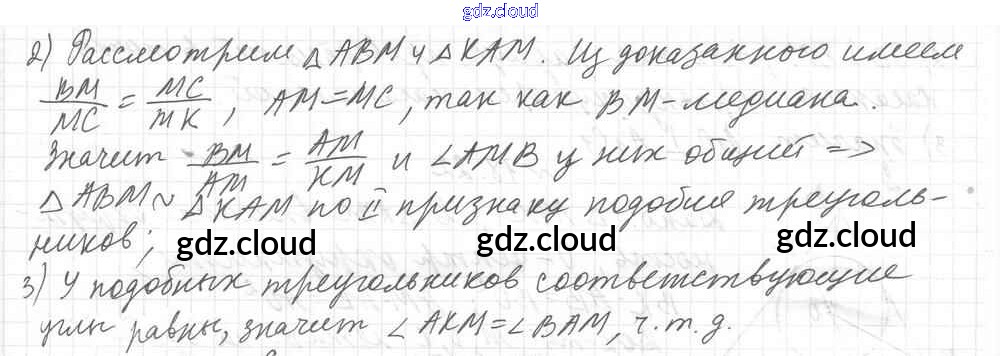 gdz.cloud
2) Рассмотрим △ABM и △KAM. Из доказанного имеем
BM/MC = MC/MK, AM=MC, так как BM-медиана.
Значит BM/AM = AM/KM и ∠AMB у них общий =>
△ABM ~ △KAM по II признаку подобия треуголь-
ников;
gdz.cloud gdz.cloud gdz.cloud
3) У подобных треугольников соответствующие
углы равны, значит ∠AKM=∠BAM, ч.т.д.